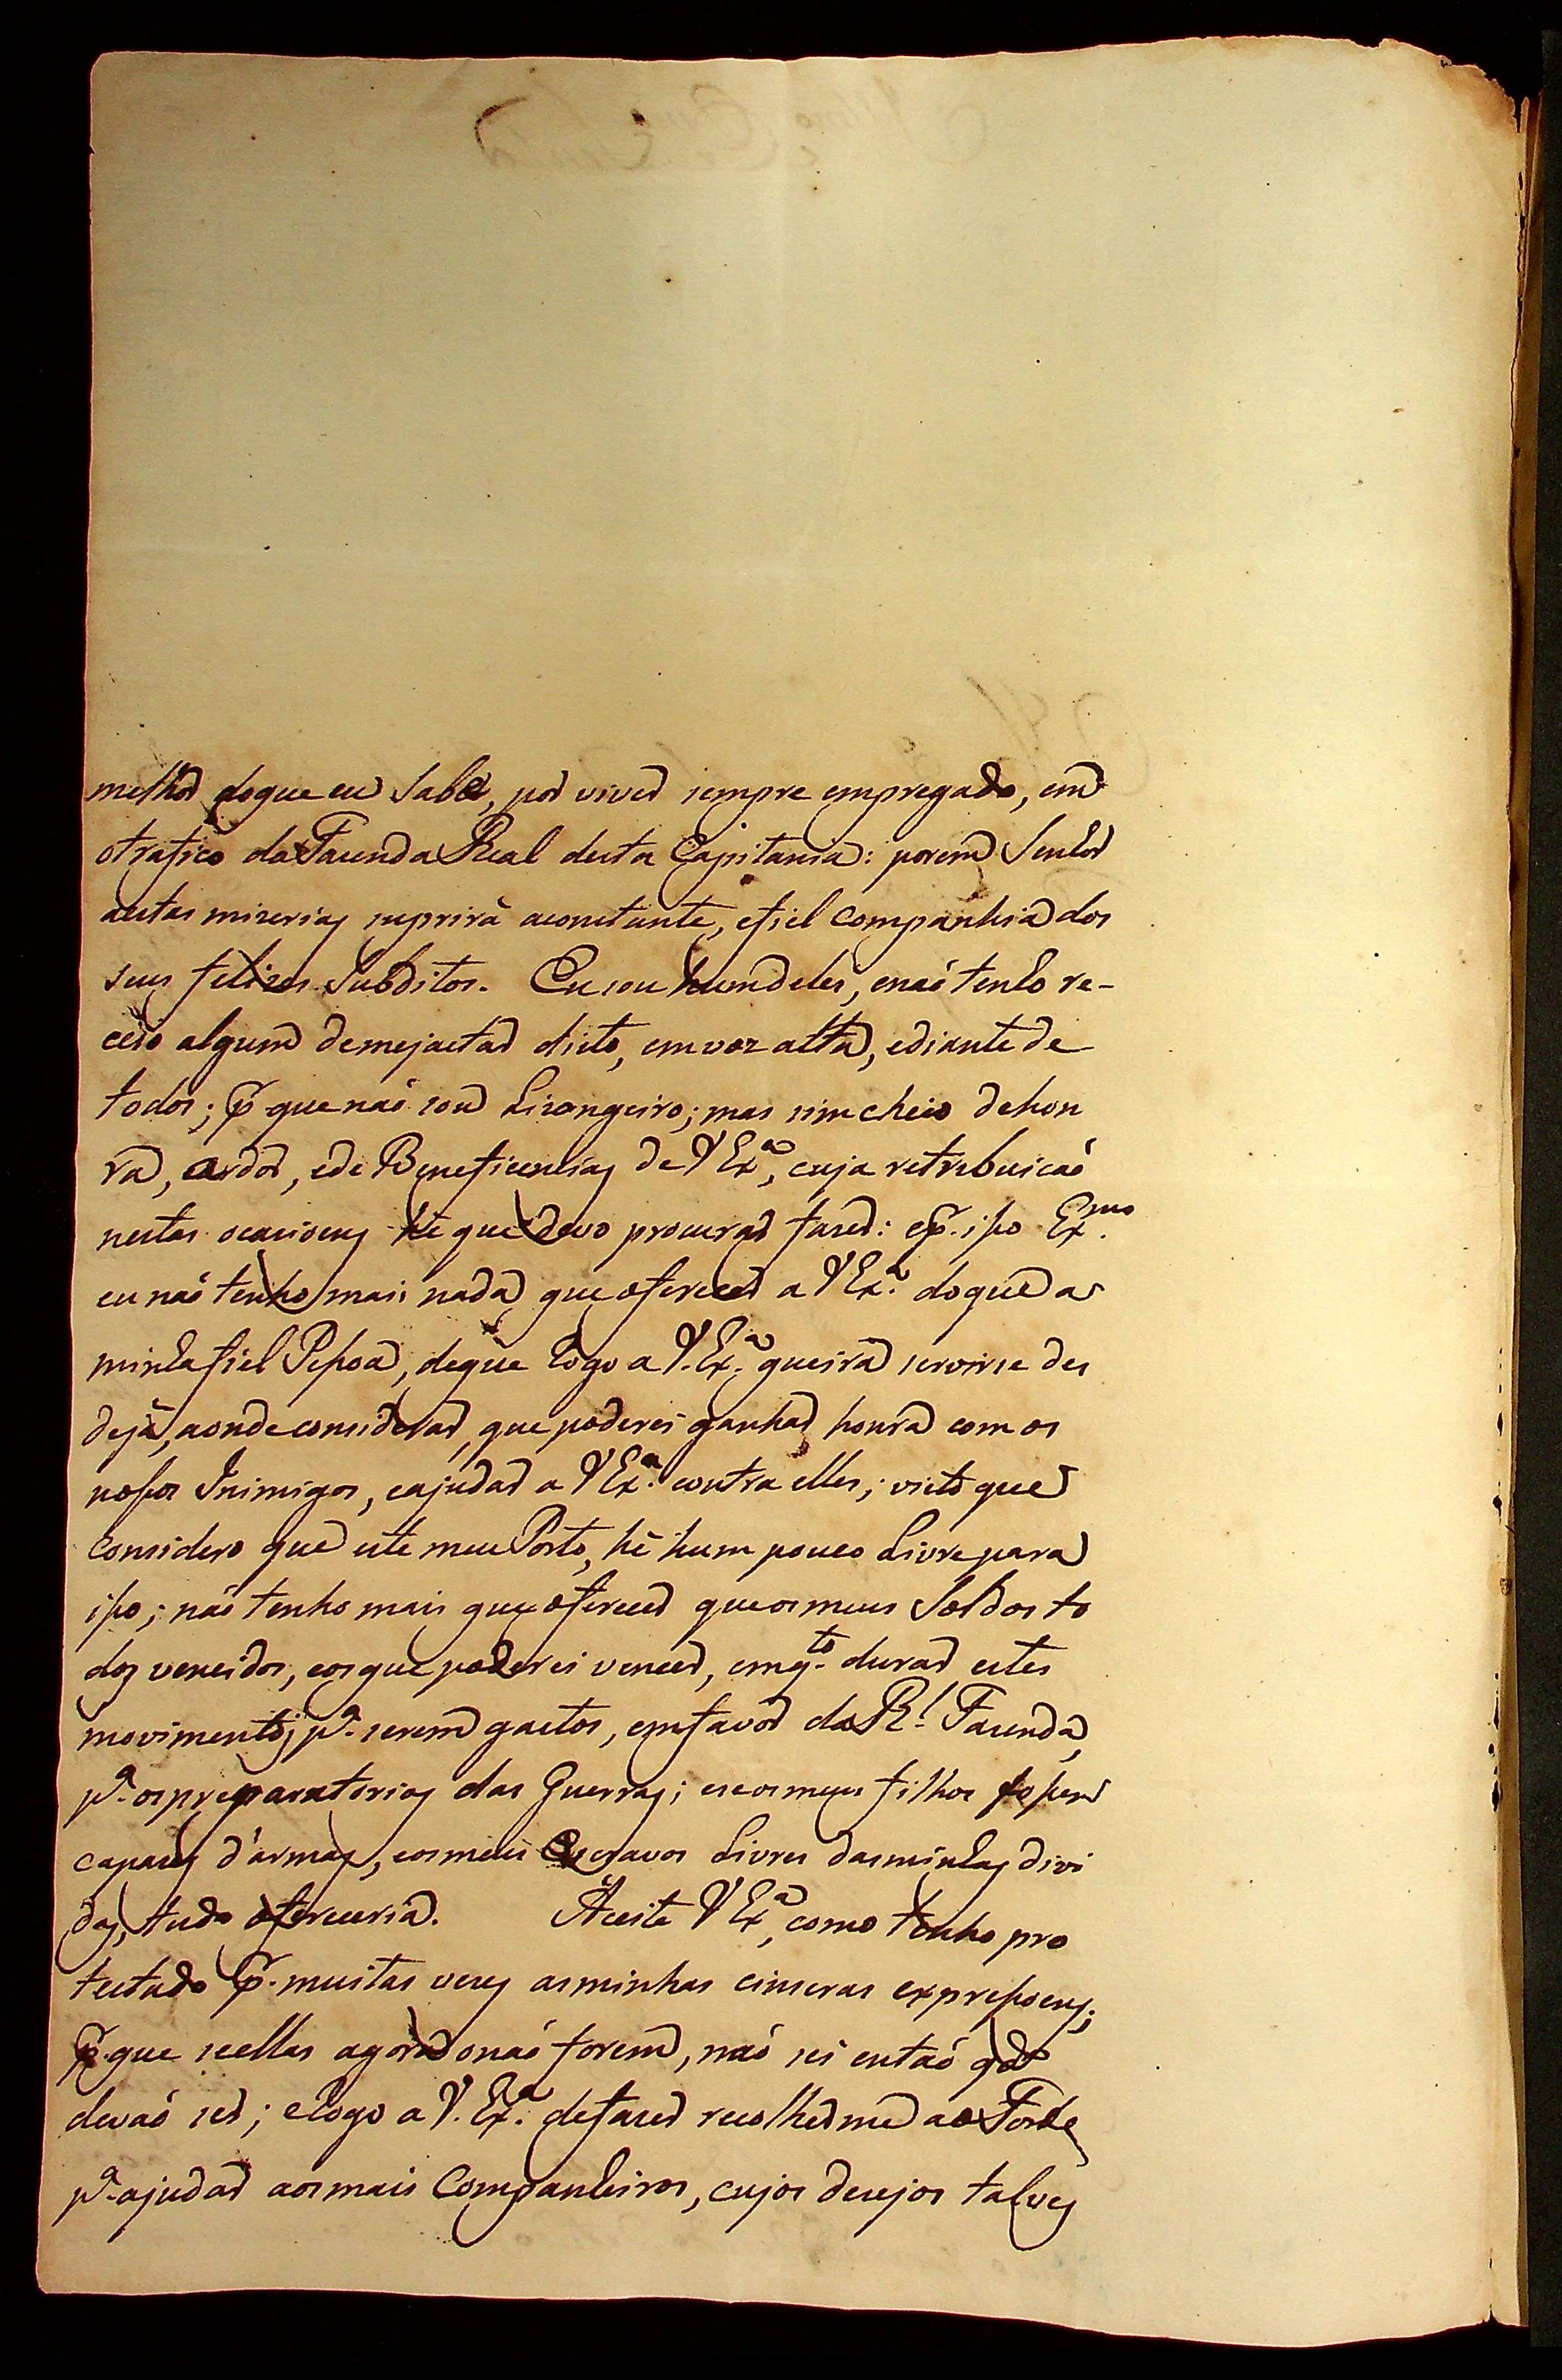 melhor doque eu sabe, por viver sempre empregado, em
o trafico da Fazenda Real desta Capitania: porem Senhor
aestas mizerias suprirá aconstante, efiel companhia dos
seus felizes Subditos. Eu sou hum deles, enaó tenho re-
ceio algum demejactar disto, em voz alta, ediante de
todos; p.r que naó sou Lisongeiro; mas sim cheio dehon
ra, ardor, ede Beneficencias de V Ex.a, cuja retribuicaó
nestas ocazioens hé que devo procurar fazer: ep.r isso Ex.mo
eu naó tenho mais nada que oferecer a V Ex.a doque a
minha fiel Pessoa, deque rogo a V. Ex.a queira servirse des
dejá, aonde considerar, que poderei ganhar honra com os
nossos Inimigos, eajudar a V Ex.a contra elles; visto que
considero que este meu Porto, hé hum pouco Livre para
isso; naó tenho mais que oferecer que os meus Soldos to
dos vencidos, eos que poderei vencer, emq.to durar estes
movimentos; p.a serem gastos, emfavor da R.l Fazenda,
p.a os preparatorios das Guerras; eseos meus filhos fossem
capazes d'armas, eos meus Escravos Livres das minhas divi
das, tudo ofereceria. Aceite V Ex.a, como tenho pro
testado p.r muitas vezes as minhas cinceras expressoens;
p.r que seellas agora onaó forem, naó sei entaó q.do
devaó ser; erogo a V. Ex.a defazer recolherme ao Forte
p.a ajudar aos mais Companheiros, cujos desejos talvez